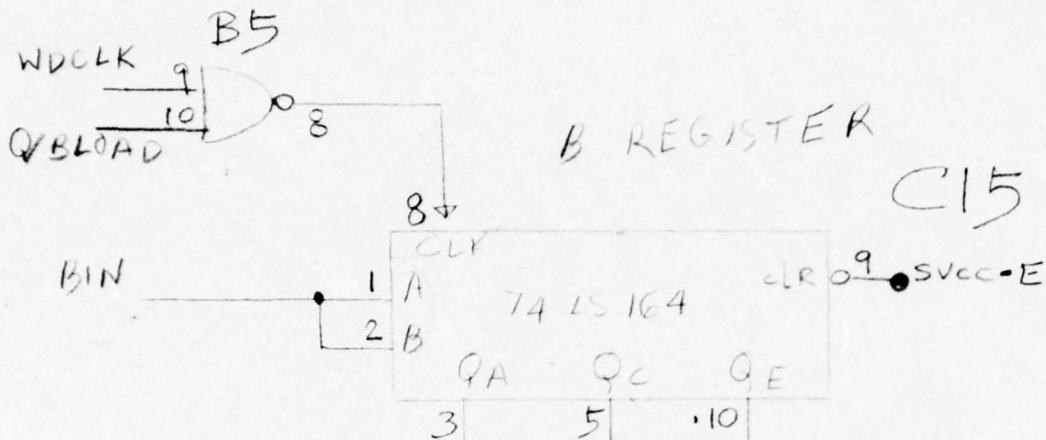 B5
WDCLK 9
10 8
Q/BLOAD
B REGISTER
C15
8
CLK
BIN 1 A 74LS164 CLR 9 SVCC-E
2 B
QA QC QE
3 5 10